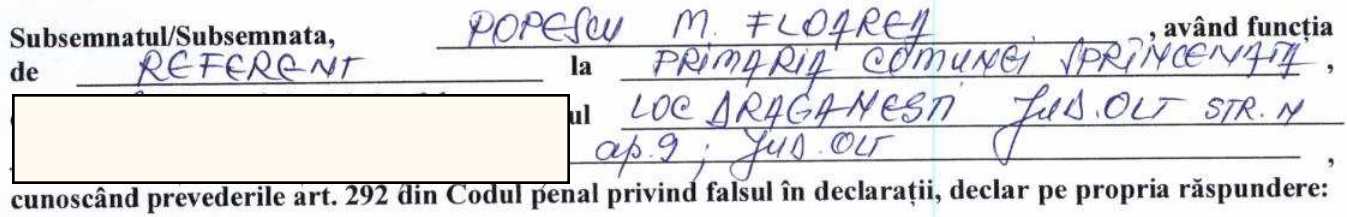 Subsemnatul/Subsemnata, POPESCU M. FLOAREA, având funcția
de REFERENT la PRIMARIA COMUNEI SPRÎNCENATA,
ul LOC DRAGANESTI JUD. OLT STR. N
ap. 9; JUD. OLT,
cunoscând prevederile art. 292 din Codul penal privind falsul în declarații, declar pe propria răspundere: